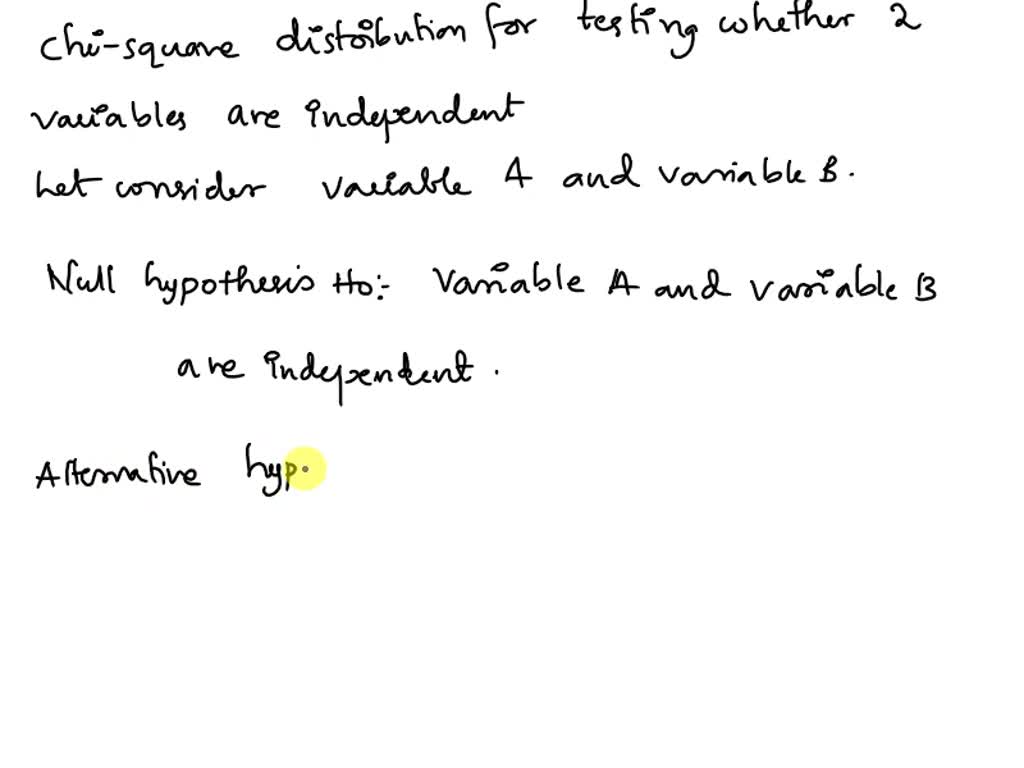 chi-square distribution for testing whether 2
variables are independent
Let consider variable A and variable B.
Null hypothesis Ho:- Variable A and variable B
are independent.
Alternative hyp